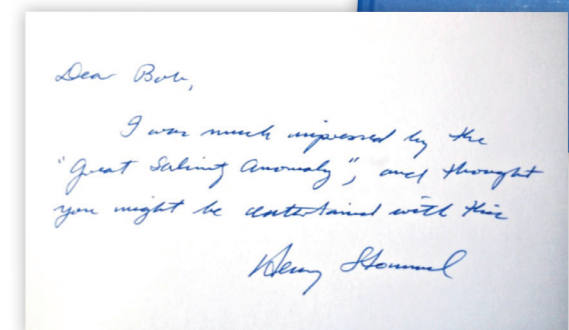 Dear Bob,
I was much impressed by the
"Great Salinity Anomaly", and thought
you might be entertained with this
Henry Stommel